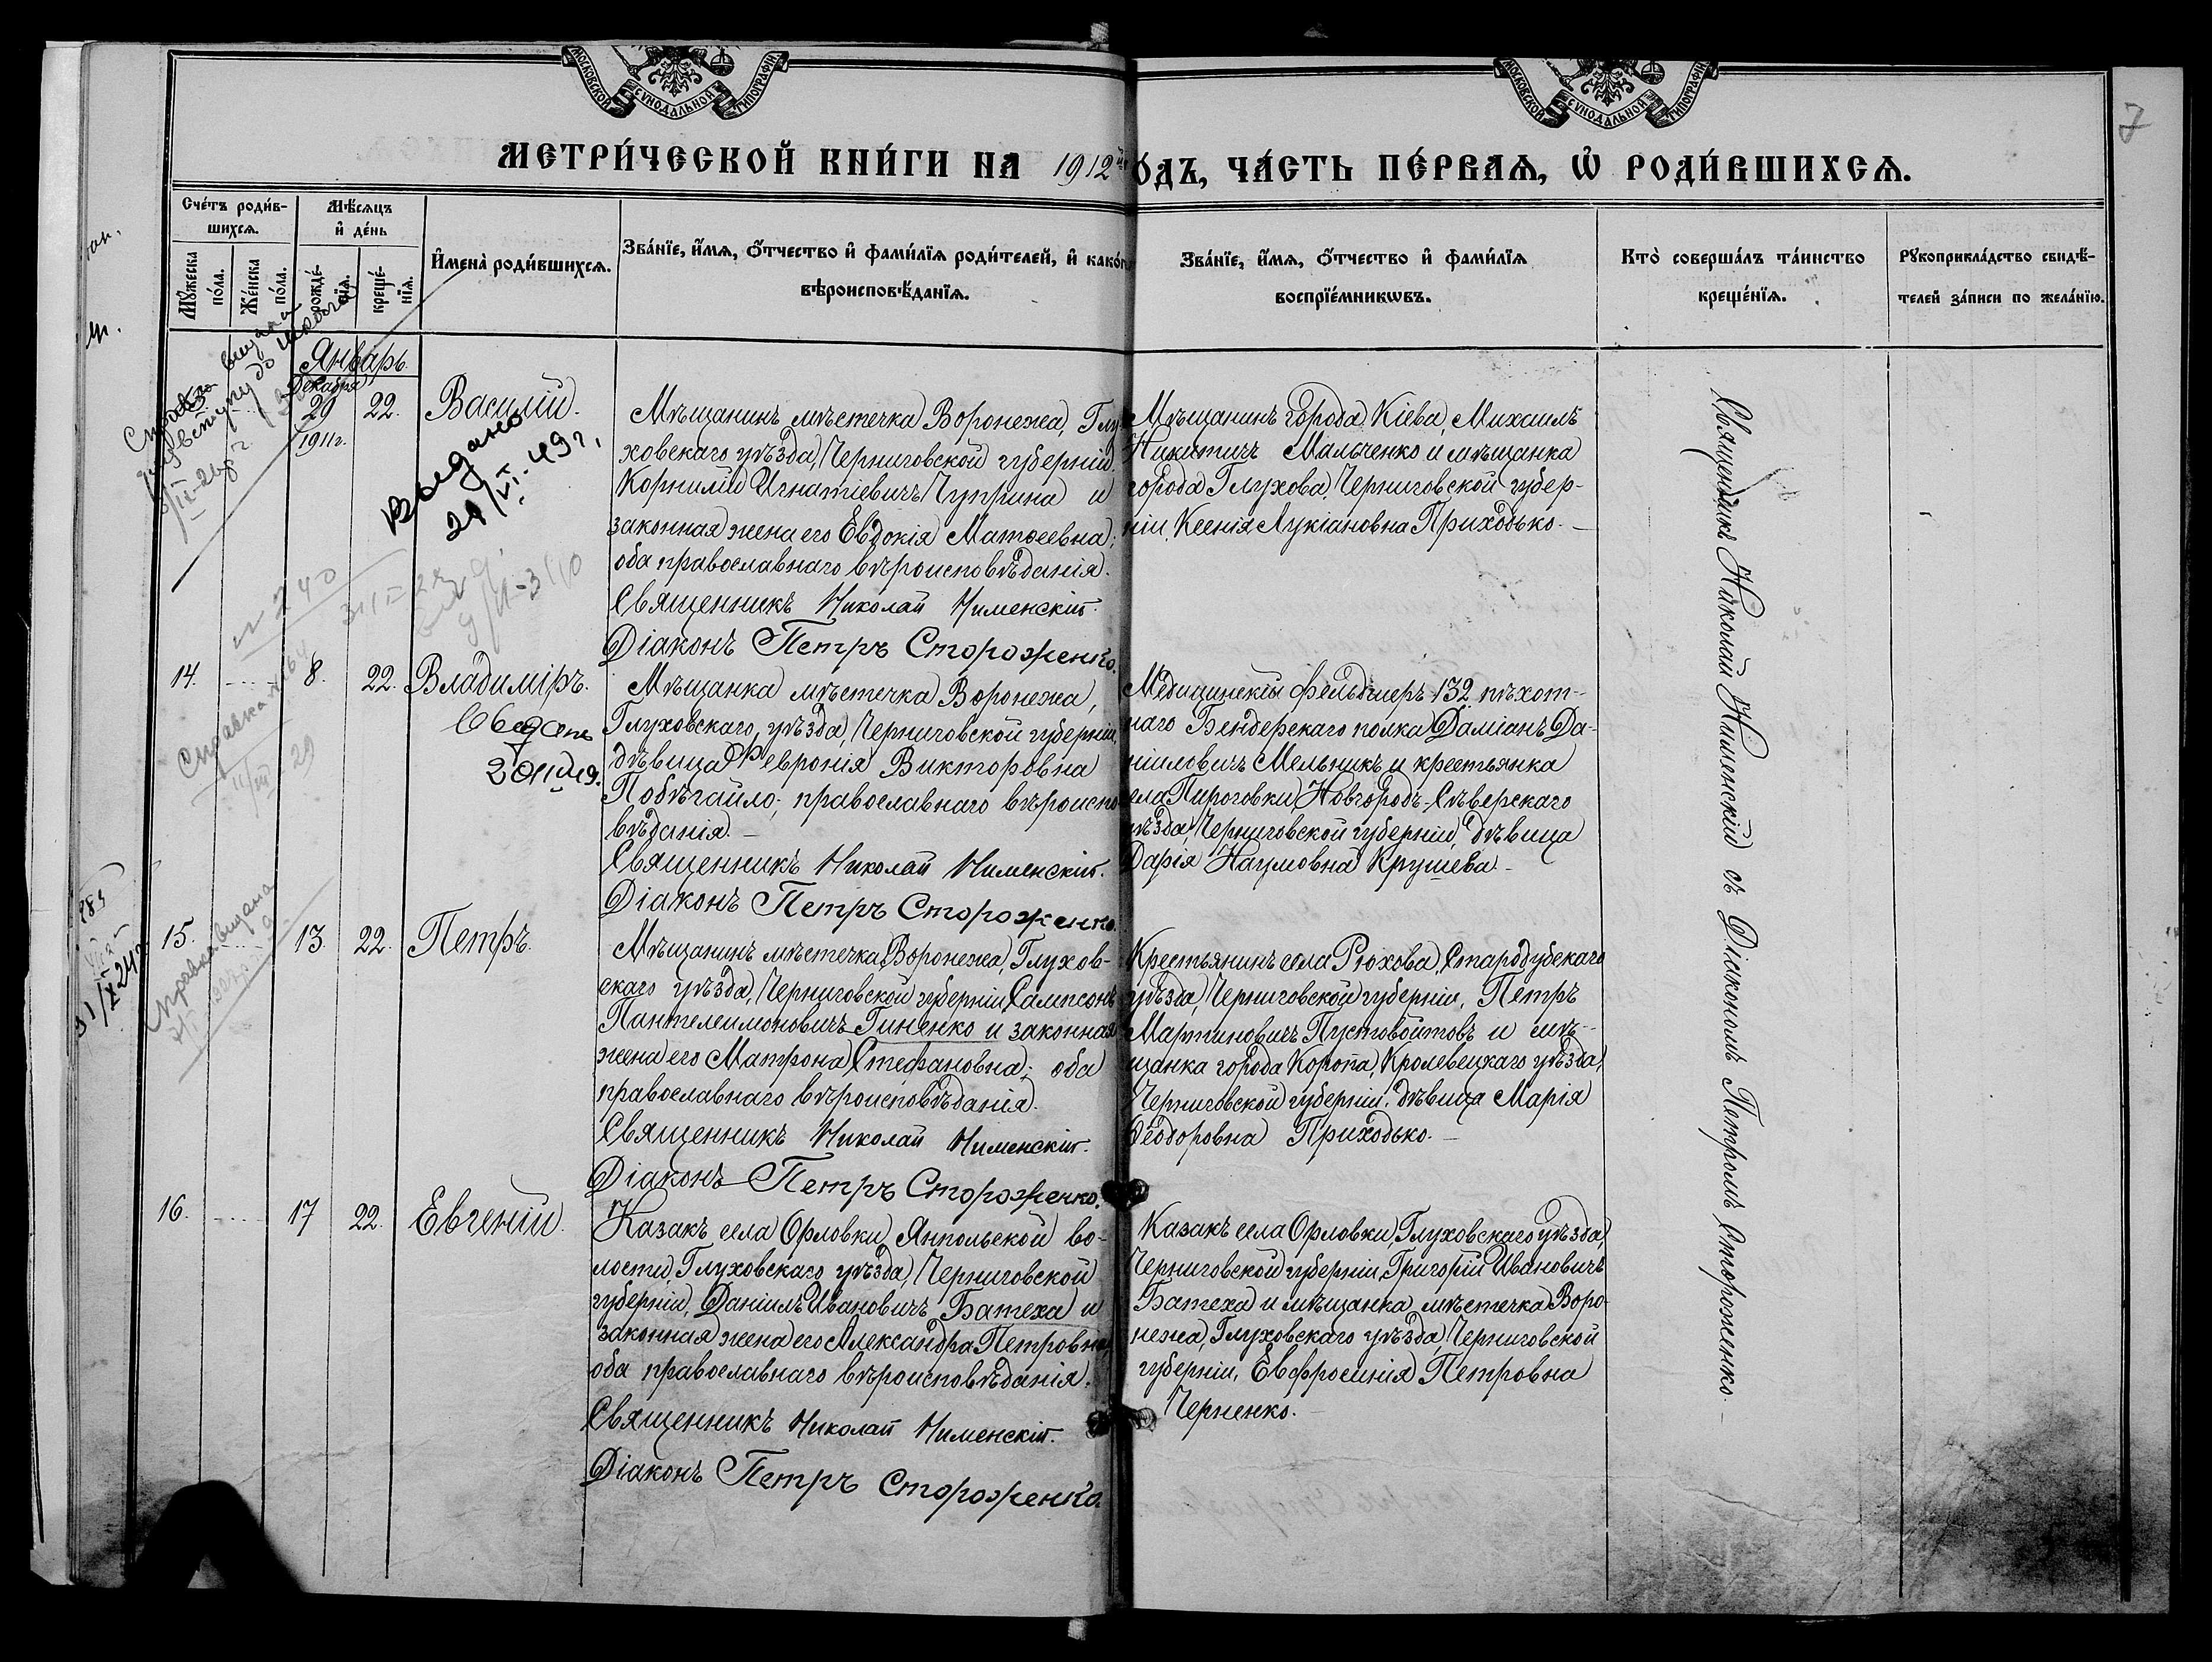 МОСКОВСКОЙ СУНОДАЛЬНОЙ ТИПОГРАФІИ
МОСКОВСКОЙ СУНОДАЛЬНОЙ ТИПОГРАФІИ
7
МЕТРИ́ЧЕСКОЙ КНИ́ГИ НА 1912й
О́ДЪ, ЧА́СТЬ ПЕ́РВАѦ, Ѡ҆ РОДИ́ВШИХСѦ.
Сче́тъ роди́в-
шихсѧ.
Мꙋ́жеска по́ла.
Же́нска по́ла.
Мѣ́сѧцъ
и҆ де́нь
рожде́-
нїѧ.
креще́-
нїѧ.
И҆мена̀ роди́вшихсѧ.
Зва́нїе, и҆́мѧ, ѻ҆́тчество и҆ фами́лїѧ роди́телей, и҆ како́г
вѣроисповѣ́данїѧ.
Зва́нїе, и҆́мѧ, ѻ҆́тчество и҆ фами́лїѧ
воспрїе́мникѡвъ.
Кто̀ соверша́лъ та́инство
креще́нїѧ.
Рꙋкоприкла́дство свидѣ́-
телей за́писи по жела́нїю.
Январь.
Декабря
29
1911г.
22.
Василій.
Выдано
29/VI-49г.
Мѣщанинъ мѣстечка Воронежа, Глу
ховскаго уѣзда, Черниговской губерніи
Корнилій Игнатіевичъ Чуприна и
законная жена его Евдокія Матѳеевна;
оба православнаго вѣроисповѣданія.
Священникъ Николай Нименскій.
Діаконъ Петръ Стороженко.
Мѣщанинъ города Кіева, Михаилъ
Никитичъ Мальченко и мѣщанка
города Глухова, Черниговской губер-
ніи, Ксенія Лукіановна Приходько. —
14.
8.
22.
Владиміръ.
Мѣщанка мѣстечка Воронежа,
Глуховскаго уѣзда, Черниговской губерніи,
дѣвица Февронія Викторовна
Побѣгайло; православнаго вѣроиспо
вѣданія. —
Священникъ Николай Нименскій.
Діаконъ Петръ Стороженко.
Медицинскій фельдшеръ 132 пѣхот-
наго Бендерскаго полка Даміанъ Да-
ніиловичъ Мельникъ и крестьянка
села Пироговки, Новгородъ-Сѣверскаго
уѣзда, Черниговской губерніи, дѣвица
Дарія Наумовна Крушева. —
15.
13.
22.
Петръ.
Мѣщанинъ мѣстечка Воронежа, Глухов-
скаго уѣзда, Черниговской губерніи, Сампсонъ
Пантелеимоновичъ Гиненко и законная
жена его Матрона Стефановна; оба
православнаго вѣроисповѣданія.
Священникъ Николай Нименскій.
Діаконъ Петръ Стороженко.
Крестьянинъ села Рюхова, Стародубскаго
уѣзда, Черниговской губерніи, Петръ
Мартиновичъ Пустовойтовъ и мѣ-
щанка города Коропа, Кролевецкаго уѣзда,
Черниговской губерніи, дѣвица Марія
Ѳеодоровна Приходько. —
16.
17
22.
Евгеній.
Казакъ села Орловки, Янпольской во-
лости, Глуховскаго уѣзда, Черниговской
губерніи, Даніилъ Ивановичъ Батеха и
законная жена его Александра Петровна;
оба православнаго вѣроисповѣданія.
Священникъ Николай Нименскій.
Діаконъ Петръ Стороженко.
Казакъ села Орловки, Глуховскаго уѣзда,
Черниговской губерніи, Григорій Ивановичъ
Батеха и мѣщанка мѣстечка Воро-
нежа, Глуховскаго уѣзда, Черниговской
губерніи, Евфросинія Петровна
Черненко. —
Священникъ Николай Нименскій съ Діакономъ Петромъ Стороженко. —